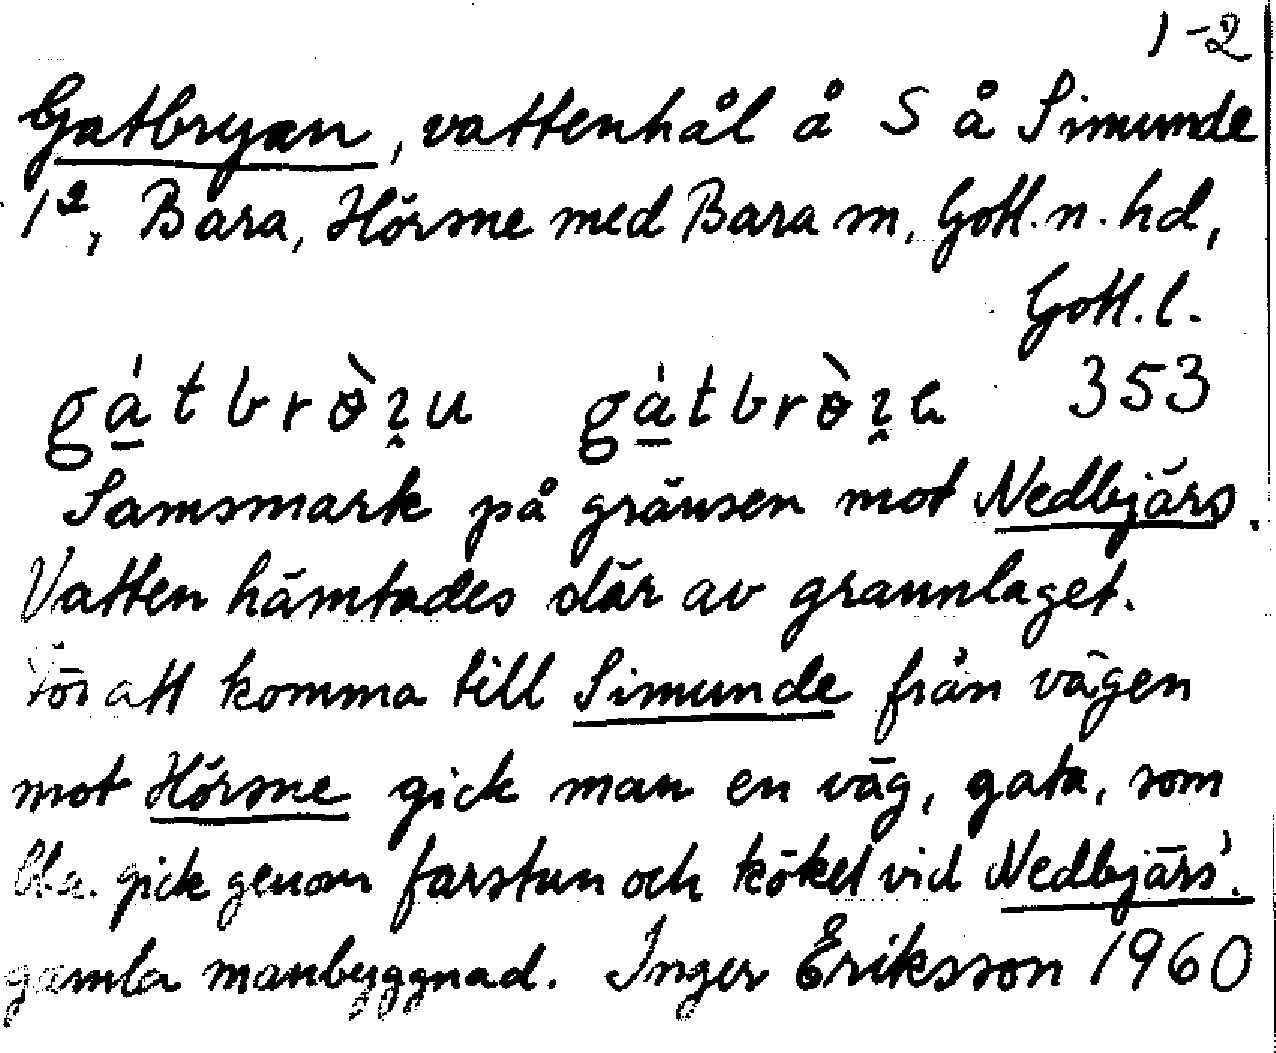 1-2
Gatbryan, vattenhål å S å Simunde
1², Bara, Hörsne med Bara sn, Gotl. n. hd,
Gotl. l.
353
Samsmark på gränsen mot Nedbjärs.
Vatten hämtades där av grannlaget.
För att komma till Simunde från vägen
mot Hörsne gick man en väg, gata, som
bl.a. gick genom farstun och köket vid Nedbjärs'
gamla manbyggnad. Inger Eriksson 1960